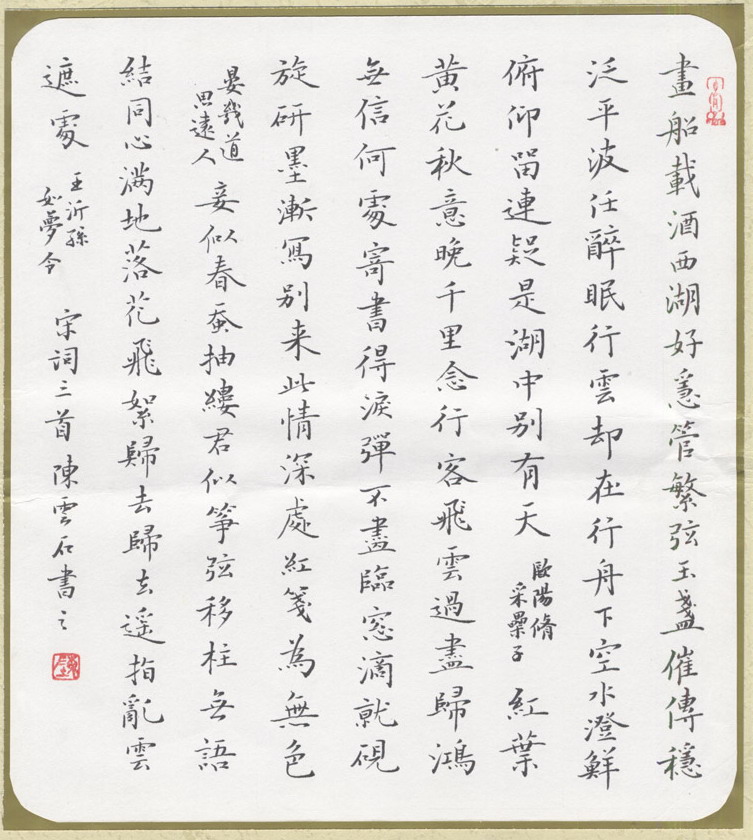 畫船載酒西湖好急管繁弦玉盞催傳穩
泛平波任醉眠行雲却在行舟下空水澄鮮
俯仰留連疑是湖中別有天 歐陽脩 采桑子 紅葉
黃花秋意晚千里念行客飛雲過盡歸鴻
无信何處寄書得淚彈不盡臨窓滴就硯
旋研墨漸寫別来此情深處紅箋為無色
晏幾道 思遠人 妾似春蚕抽縷君似箏弦移柱无語
結同心滿地落花飛絮歸去歸去遥指亂雲
遮處 王沂孫 如夢令 宋詞三首 陳雲石書之